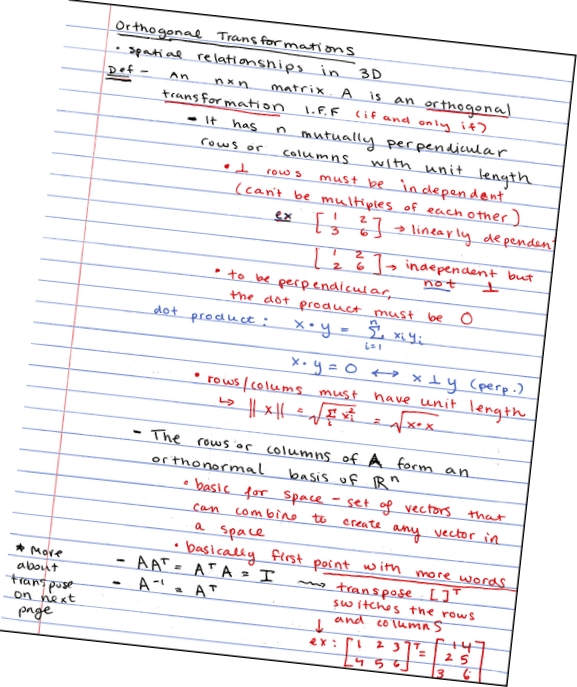 Orthogonal Transformations
• spatial relationships in 3D
Def - An nxn matrix A is an orthogonal
transformation I.F.F (if and only if)
- It has n mutually perpendicular
rows or columns with unit length
• ⊥ rows must be independent
(can't be multiples of each other)
ex [1 2
3 6] → linearly dependent
[1 2
2 6] → independent but
not ⊥
• to be perpendicular,
the dot product must be 0
dot product: x • y = Σ_{i=1}^{n} xᵢyᵢ
x • y = 0 ↔ x ⊥ y (perp.)
• rows/colums must have unit length
↳ ||x|| = √(Σᵢⁿ xᵢ²) = √(x•x)
- The rows or columns of A form an
orthonormal basis of ℝⁿ
• basic for space - set of vectors that
can combine to create any vector in
a space
• basically first point with more words
- AAᵀ = AᵀA = I ⇝ transpose [ ]ᵀ
switches the rows
and columns
- A⁻¹ = Aᵀ
* More
about
transpose
on next
page
↓
ex: [1 2 3
4 5 6]ᵀ = [1 4
2 5
3 6]